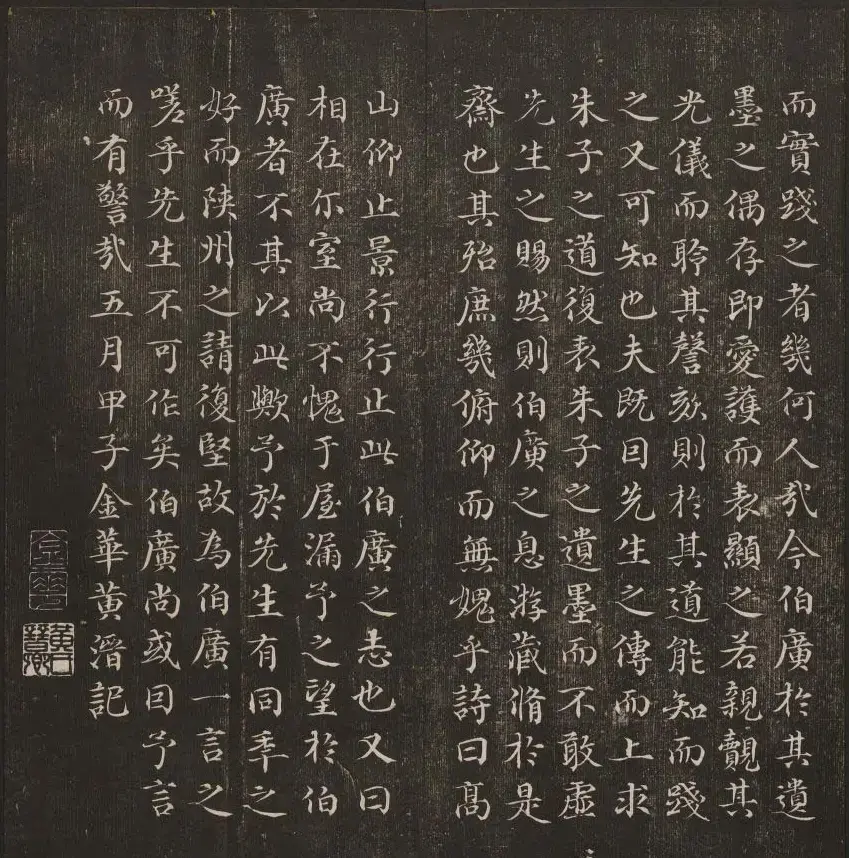 而實踐之者幾何人㢤今伯廣於其遺
墨之偶存即愛護而表顯之若親覿其
光儀而聆其謦欬則於其道能知而踐
之又可知也夫既因先生之傳而上求
朱子之道復表朱子之遺墨而不敢虛
先生之賜然則伯廣之息游蔵脩於是
齋也其殆庶幾俯仰而無媿乎詩曰髙
山仰止景行行止此伯廣之志也又曰
相在尔室尚不愧于屋漏予之望於伯
廣者不其以此歟予於先生有同年之
好而陕州之請復堅故為伯廣一言之
嗟乎先生不可作矣伯廣尚或因予言
而有警㢤五月甲子金華黄溍記
金華
黄氏晉卿